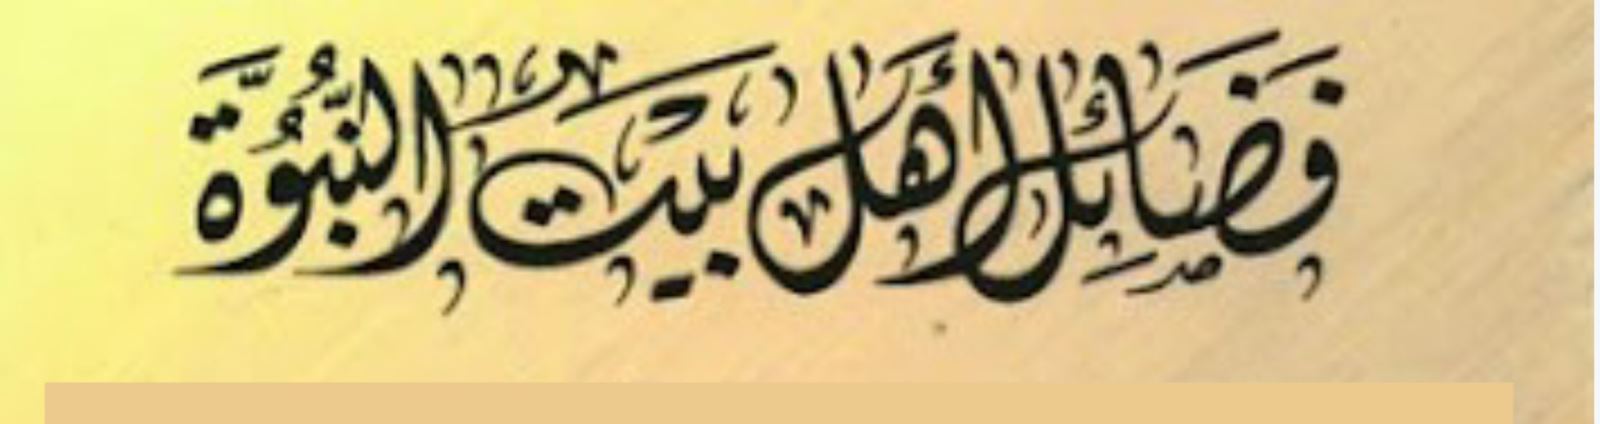 فَضَائِل أَهْل بَيْت النُّبُوَّة